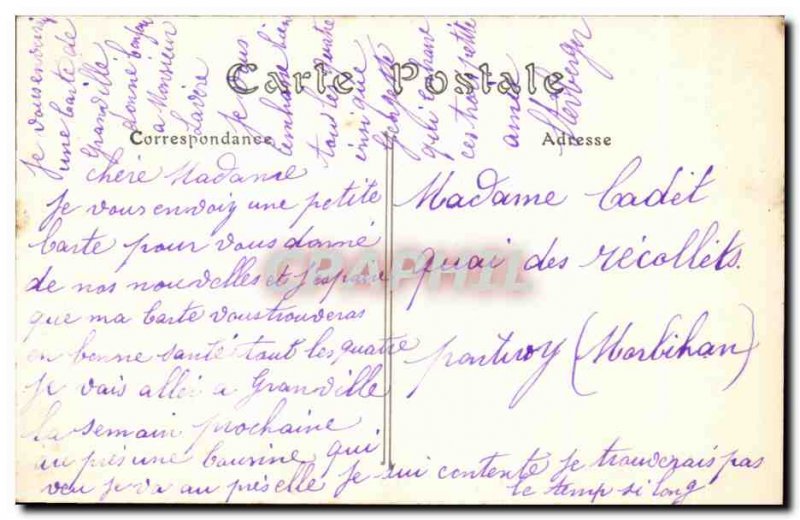 Carte Postale
Correspondance
Adresse
Chère Madame
Je vous envoiy une petite
Carte pour vous donné
de nos nouvelles et J'espère
que ma Carte vous trouveras
en bonne santé tout les quatre
Je vais allei a Granville
la semain prochaine
au près une Cousine qui
veu Je va au près elle Je sui contente Je trouverais pas
le temp si long
Je vous envoiy
une Carte de
Granville
donné bonjour
a Monsieur
Je vous
embrasse bien
tous les quatre
ainsi que
qui
ces trois petite
amie
Madame Cadet
quai des récollets.
pontivy (Morbihan)
CPAPHIL